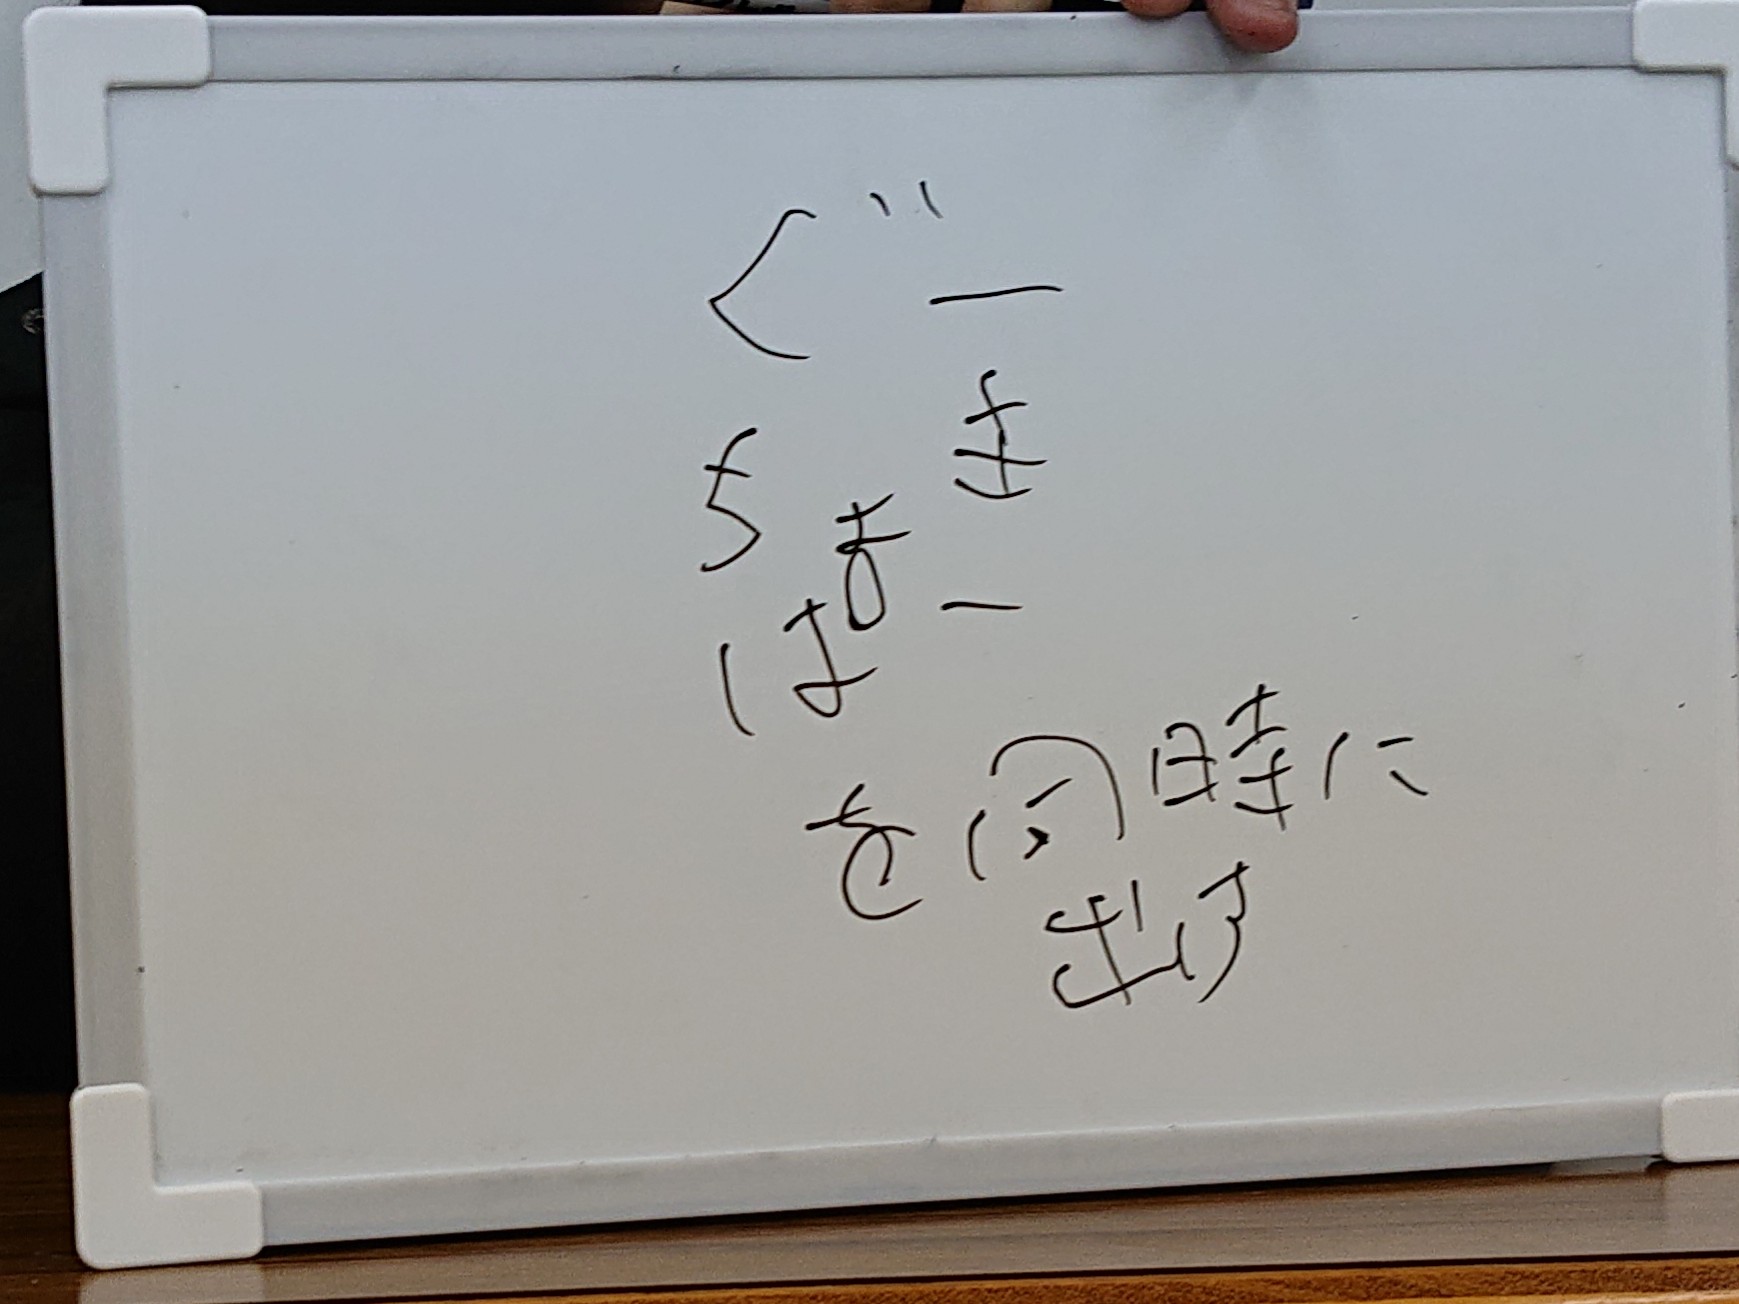 ぐー
ちょき
ぱー
を同時に
出す